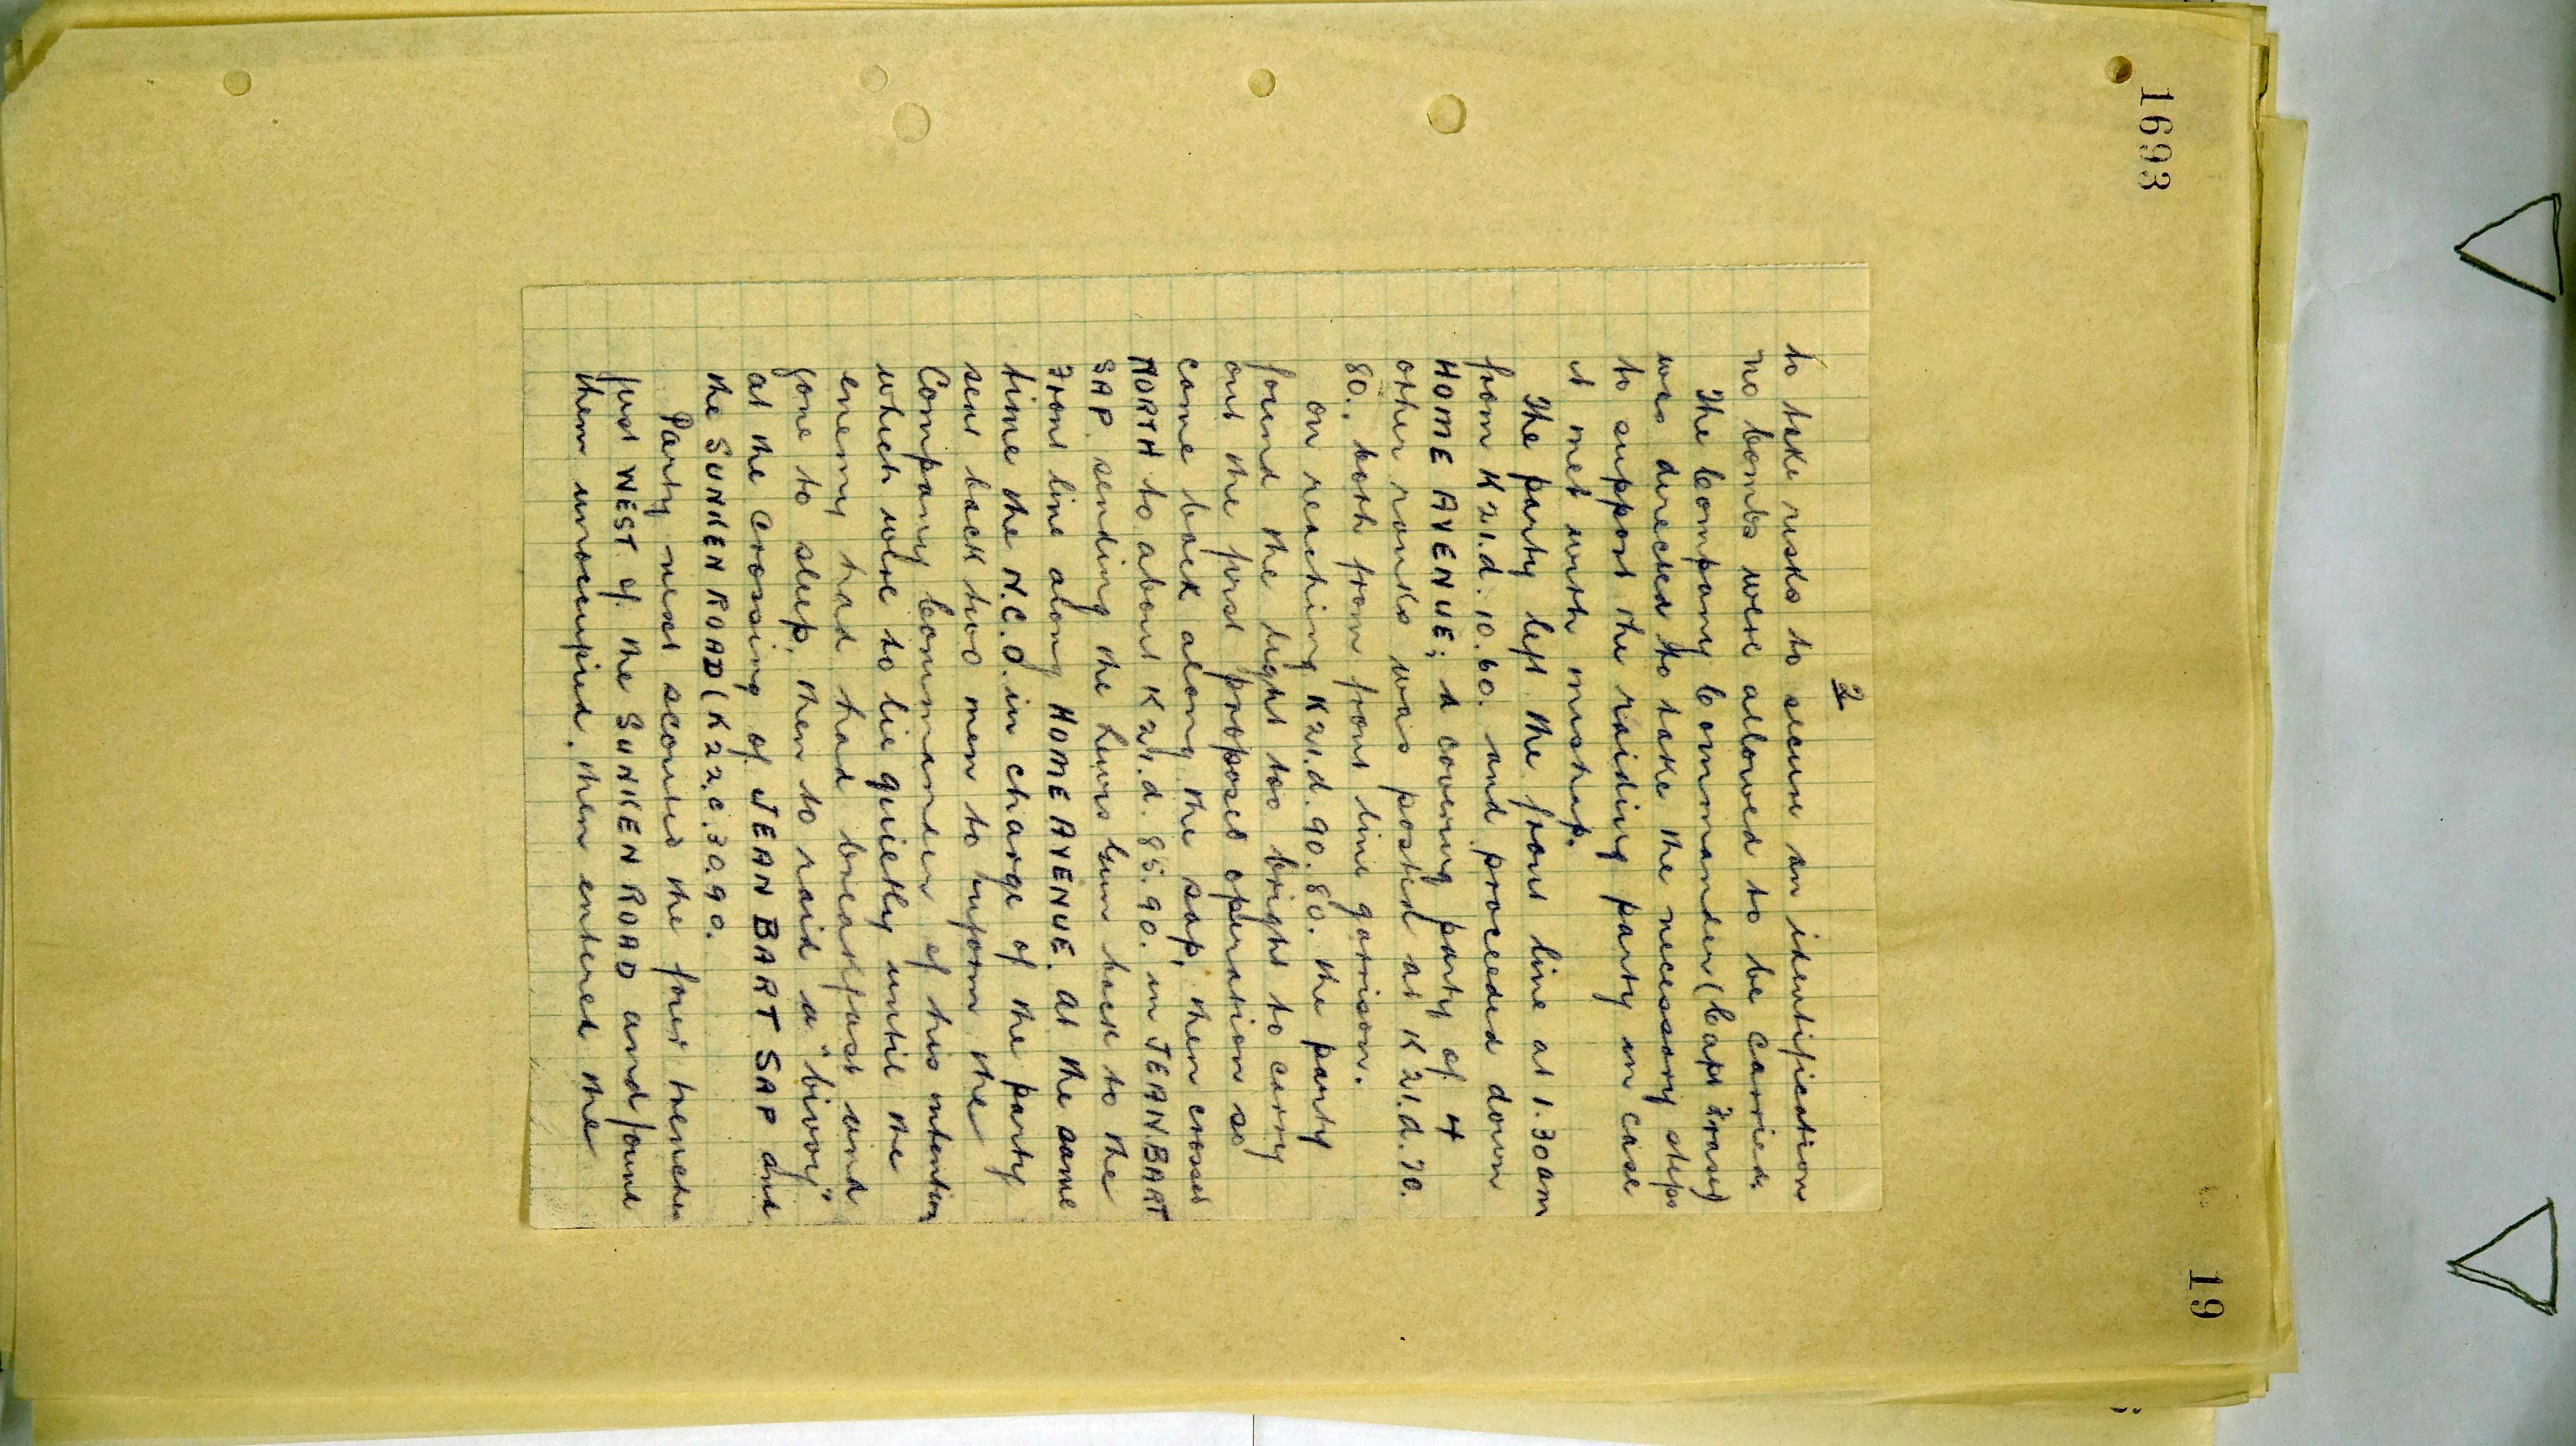 1693
19
2
to take risks to secure an identification
no bombs were allowed to be carried.
The Company Commander (Capt Frasy)
was directed to take the necessary steps
to support the raiding party in case
it met with mishap.
The party left the front line at 1.30am
from K21.d.10.60. and proceeded down
HOME AVENUE; a covering party of 4
other ranks was posted at K21.d.70.
80., both from front line garrison.
On reaching K21.d.90.80. the party
found the light too bright to carry
out the first proposed operation so
came back along the sap, then crossed
NORTH to about K21.d.85.90. in JEAN BART
SAP sending the Lewis Gun back to the
Front line along HOME AVENUE. At the same
time the N.C.O. in charge of the party
sent back two men to inform the
Company Commander of his intention
which were to lie quietly until the
enemy had had breakfast and
gone to sleep, then to raid a "bivvy"
at the crossing of JEAN BART SAP and
the SUNKEN ROAD (K22.c.30.90.
Party next scouted the four trenches
just WEST of the SUNKEN ROAD and found
them unoccupied, then entered the